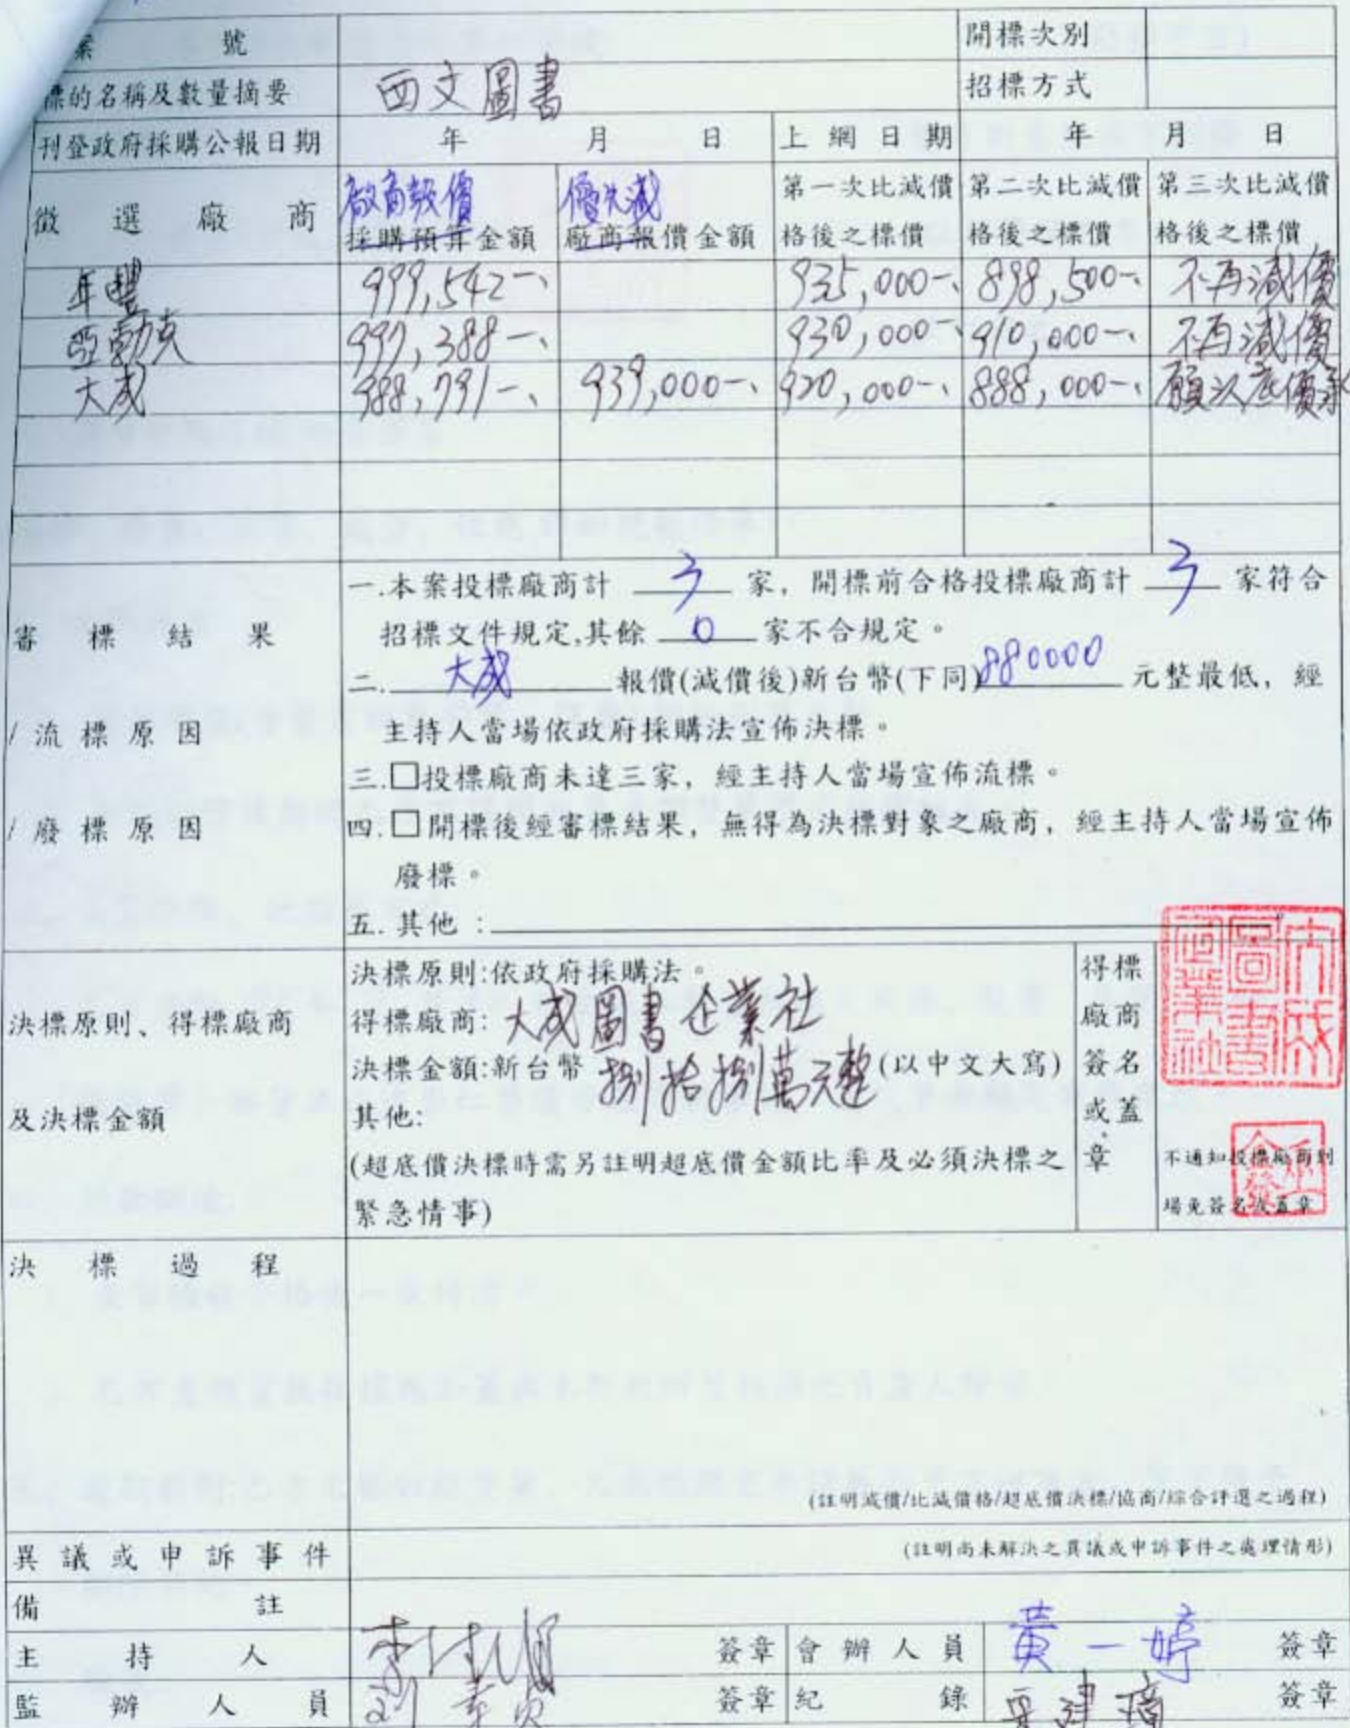 案 號 開標次別
標的名稱及數量摘要 西文圖書 招標方式
刊登政府採購公報日期 年 月 日 上網日期 年 月 日
徵選廠商 廠商報價 採購預算金額 優先減 廠商報價金額 第一次比減價格後之標價 第二次比減價格後之標價 第三次比減價格後之標價
年豐 999,542-、 935,000-、 898,500-、 不再減價
亞勃克 997,388-、 930,000-、 910,000-、 不再減價
大成 988,791-、 939,000-、 920,000-、 888,000-、 願以底價承
審標結果
/流標原因
/廢標原因
一.本案投標廠商計 3 家，開標前合格投標廠商計 3 家符合
招標文件規定,其餘 0 家不合規定。
二. 大成 報價(減價後)新台幣(下同) 880000 元整最低，經
主持人當場依政府採購法宣佈決標。
三.□投標廠商未達三家，經主持人當場宣佈流標。
四.□開標後經審標結果，無得為決標對象之廠商，經主持人當場宣佈
廢標。
五.其他：
決標原則、得標廠商
及決標金額
決標原則:依政府採購法。
得標廠商:大成圖書企業社
決標金額:新台幣 捌拾捌萬元整 (以中文大寫)
其他:
(超底價決標時需另註明超底價金額比率及必須決標之
緊急情事)
得標
廠商
簽名
或蓋
章
大成
圖書
企業社
不通知投標廠商到
場免簽名或蓋章
決標過程
(註明減價/比減價格/超底價決標/協商/綜合評選之過程)
異議或申訴事件 (註明尚未解決之異議或申訴事件之處理情形)
備註
主持人 簽章 會辦人員 黃一婷 簽章
監辦人員 簽章 紀錄 簽章